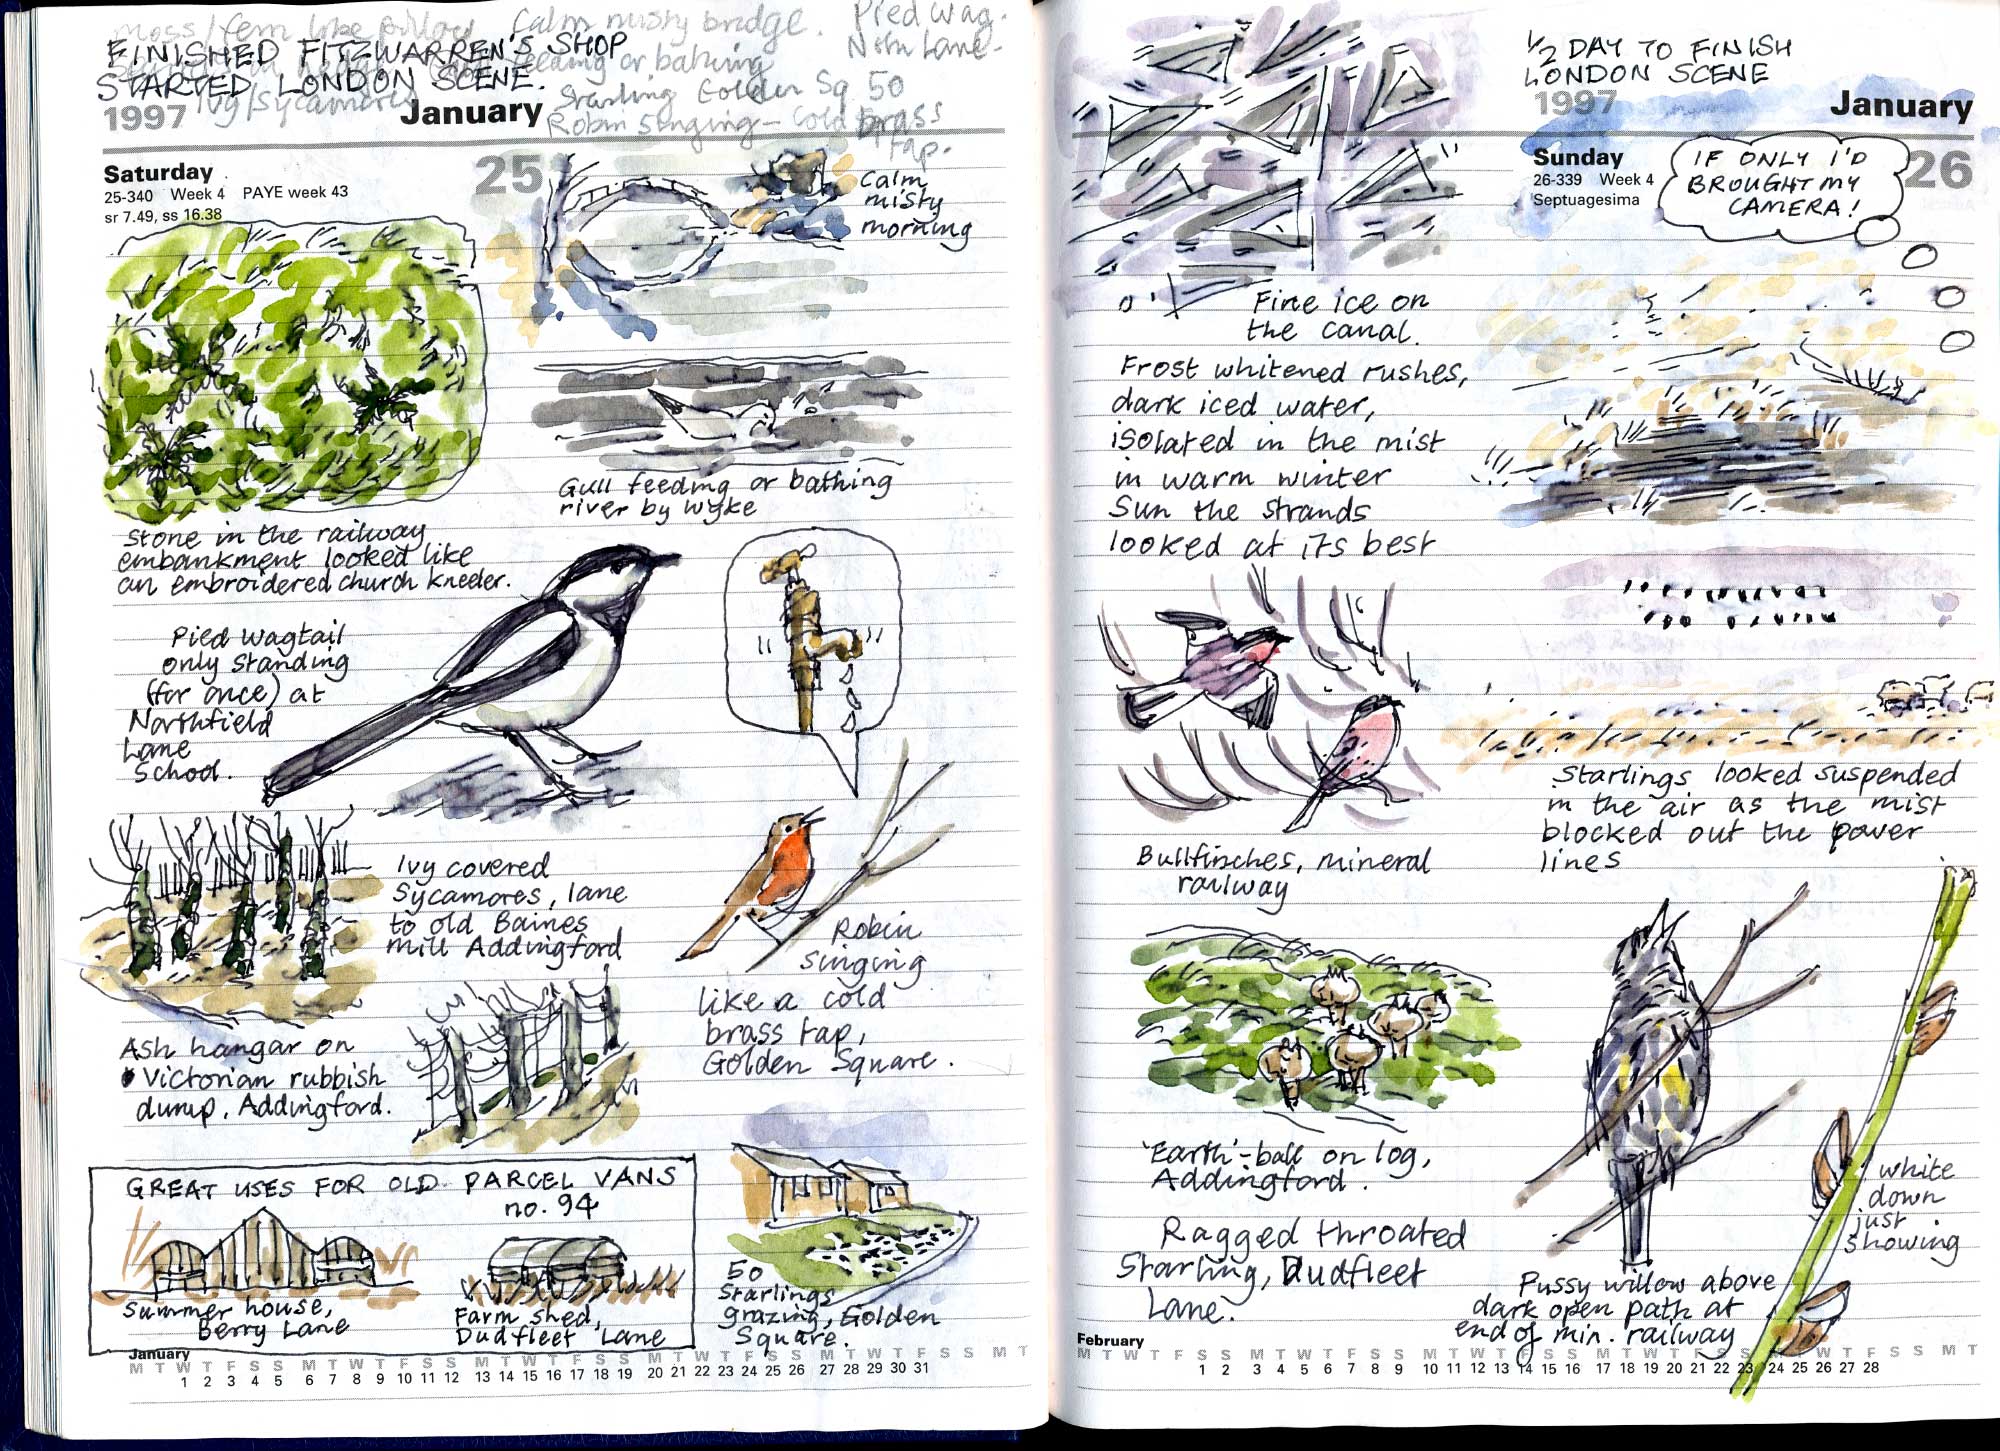 moss/fern like pillow
Calm misty bridge.
Pied Wag.
Nth Lane-
FINISHED FITZWARREN'S SHOP
STARTED LONDON SCENE.
feeding or bathing
Ivy/Sycamores
Starling Golden Sq 50
Robin singing - Cold brass
tap.
1997
January
Saturday
25
25-340 Week 4 PAYE week 43
sr 7.49, ss 16.38
Calm
misty
morning
Gull feeding or bathing
river by Wyke
Stone in the railway
embankment looked like
an embroidered church kneeler.
Pied wagtail
only standing
(for once) at
Northfield
Lane
School.
Ivy covered
Sycamores, lane
to old Baines
mill Addingford
Robin
singing
like a cold
brass tap,
Golden Square.
Ash hangar on
Victorian rubbish
dump, Addingford.
GREAT USES FOR OLD PARCEL VANS
no. 94
Summer house,
Berry Lane
Farm shed,
Dudfleet Lane
50
Starlings
grazing, Golden
Square.
January
M T W T F S S M T W T F S S M T W T F S S M T W T F S S M T W T F S S M T
1 2 3 4 5 6 7 8 9 10 11 12 13 14 15 16 17 18 19 20 21 22 23 24 25 26 27 28 29 30 31
½ DAY TO FINISH
LONDON SCENE
1997
January
Sunday
26
26-339 Week 4
Septuagesima
IF ONLY I'D
BROUGHT MY
CAMERA!
Fine ice on
the canal.
Frost whitened rushes,
dark iced water,
isolated in the mist
in warm winter
Sun the strands
looked at its best
Starlings looked suspended
in the air as the mist
blocked out the power
lines
Bullfinches, mineral
railway
'Earth'-ball on log,
Addingford.
Ragged throated
Starling, Dudfleet
Lane.
white
down
just
showing
Pussy willow above
dark open path at
end of min. railway
February
M T W T F S S M T W T F S S M T W T F S S M T W T F S S M T W T F S S M T
1 2 3 4 5 6 7 8 9 10 11 12 13 14 15 16 17 18 19 20 21 22 23 24 25 26 27 28